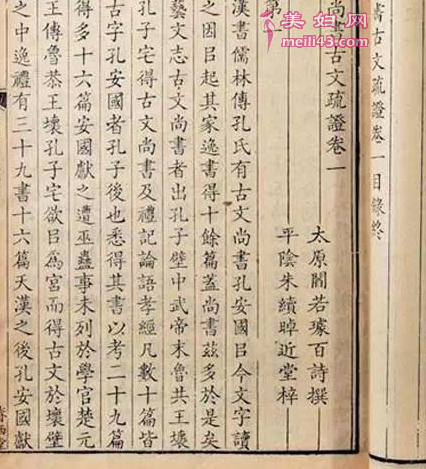 書古文疏證卷一目錄終
尚書古文疏證卷一
太原閻若璩百詩撰
平陰朱續晫近堂梓
第
漢書儒林傳孔氏有古文尚書孔安國㠯今文字讀
之因㠯起其家逸書得十餘篇蓋尚書茲多於是矣
藝文志古文尚書者出孔子壁中武帝末魯共王壞
孔子宅得古文尚書及禮記論語孝經凡數十篇皆
古字孔安國者孔子後也悉得其書以考二十九篇
得多十六篇安國獻之遭巫蠱事未列於學官楚元
王傳魯恭王壞孔子宅欲㠯為宮而得古文於壞壁
之中逸禮有三十九書十六篇天漢之後孔安國獻
美妇网
meili43.com